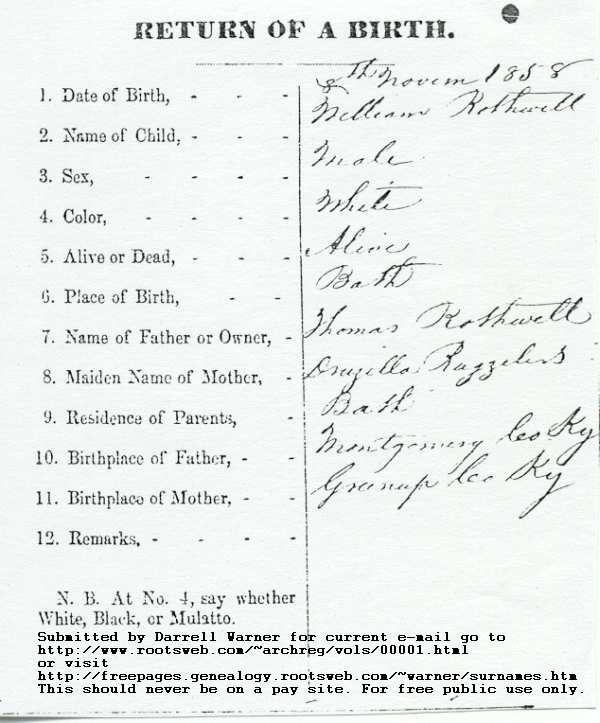 RETURN OF A BIRTH.
1. Date of Birth, - - - 8th Novem 1858
2. Name of Child, - - - William Rothwell
3. Sex, - - - - Male
4. Color, - - - - White
5. Alive or Dead, - - - Alive
6. Place of Birth, - - Bath
7. Name of Father or Owner, - Thomas Rothwell
8. Maiden Name of Mother, - Druzilla
9. Residence of Parents, - Bath
10. Birthplace of Father, - - Montgomery Co Ky
11. Birthplace of Mother, - - Greenup Co Ky
12. Remarks, - - - -
N. B. At No. 4, say whether
White, Black, or Mulatto.
Submitted by Darrell Warner for current e-mail go to
http://www.rootsweb.com/~archreg/vols/00001.html
or visit
http://freepages.genealogy.rootsweb.com/~warner/surnames.htm
This should never be on a pay site. For free public use only.